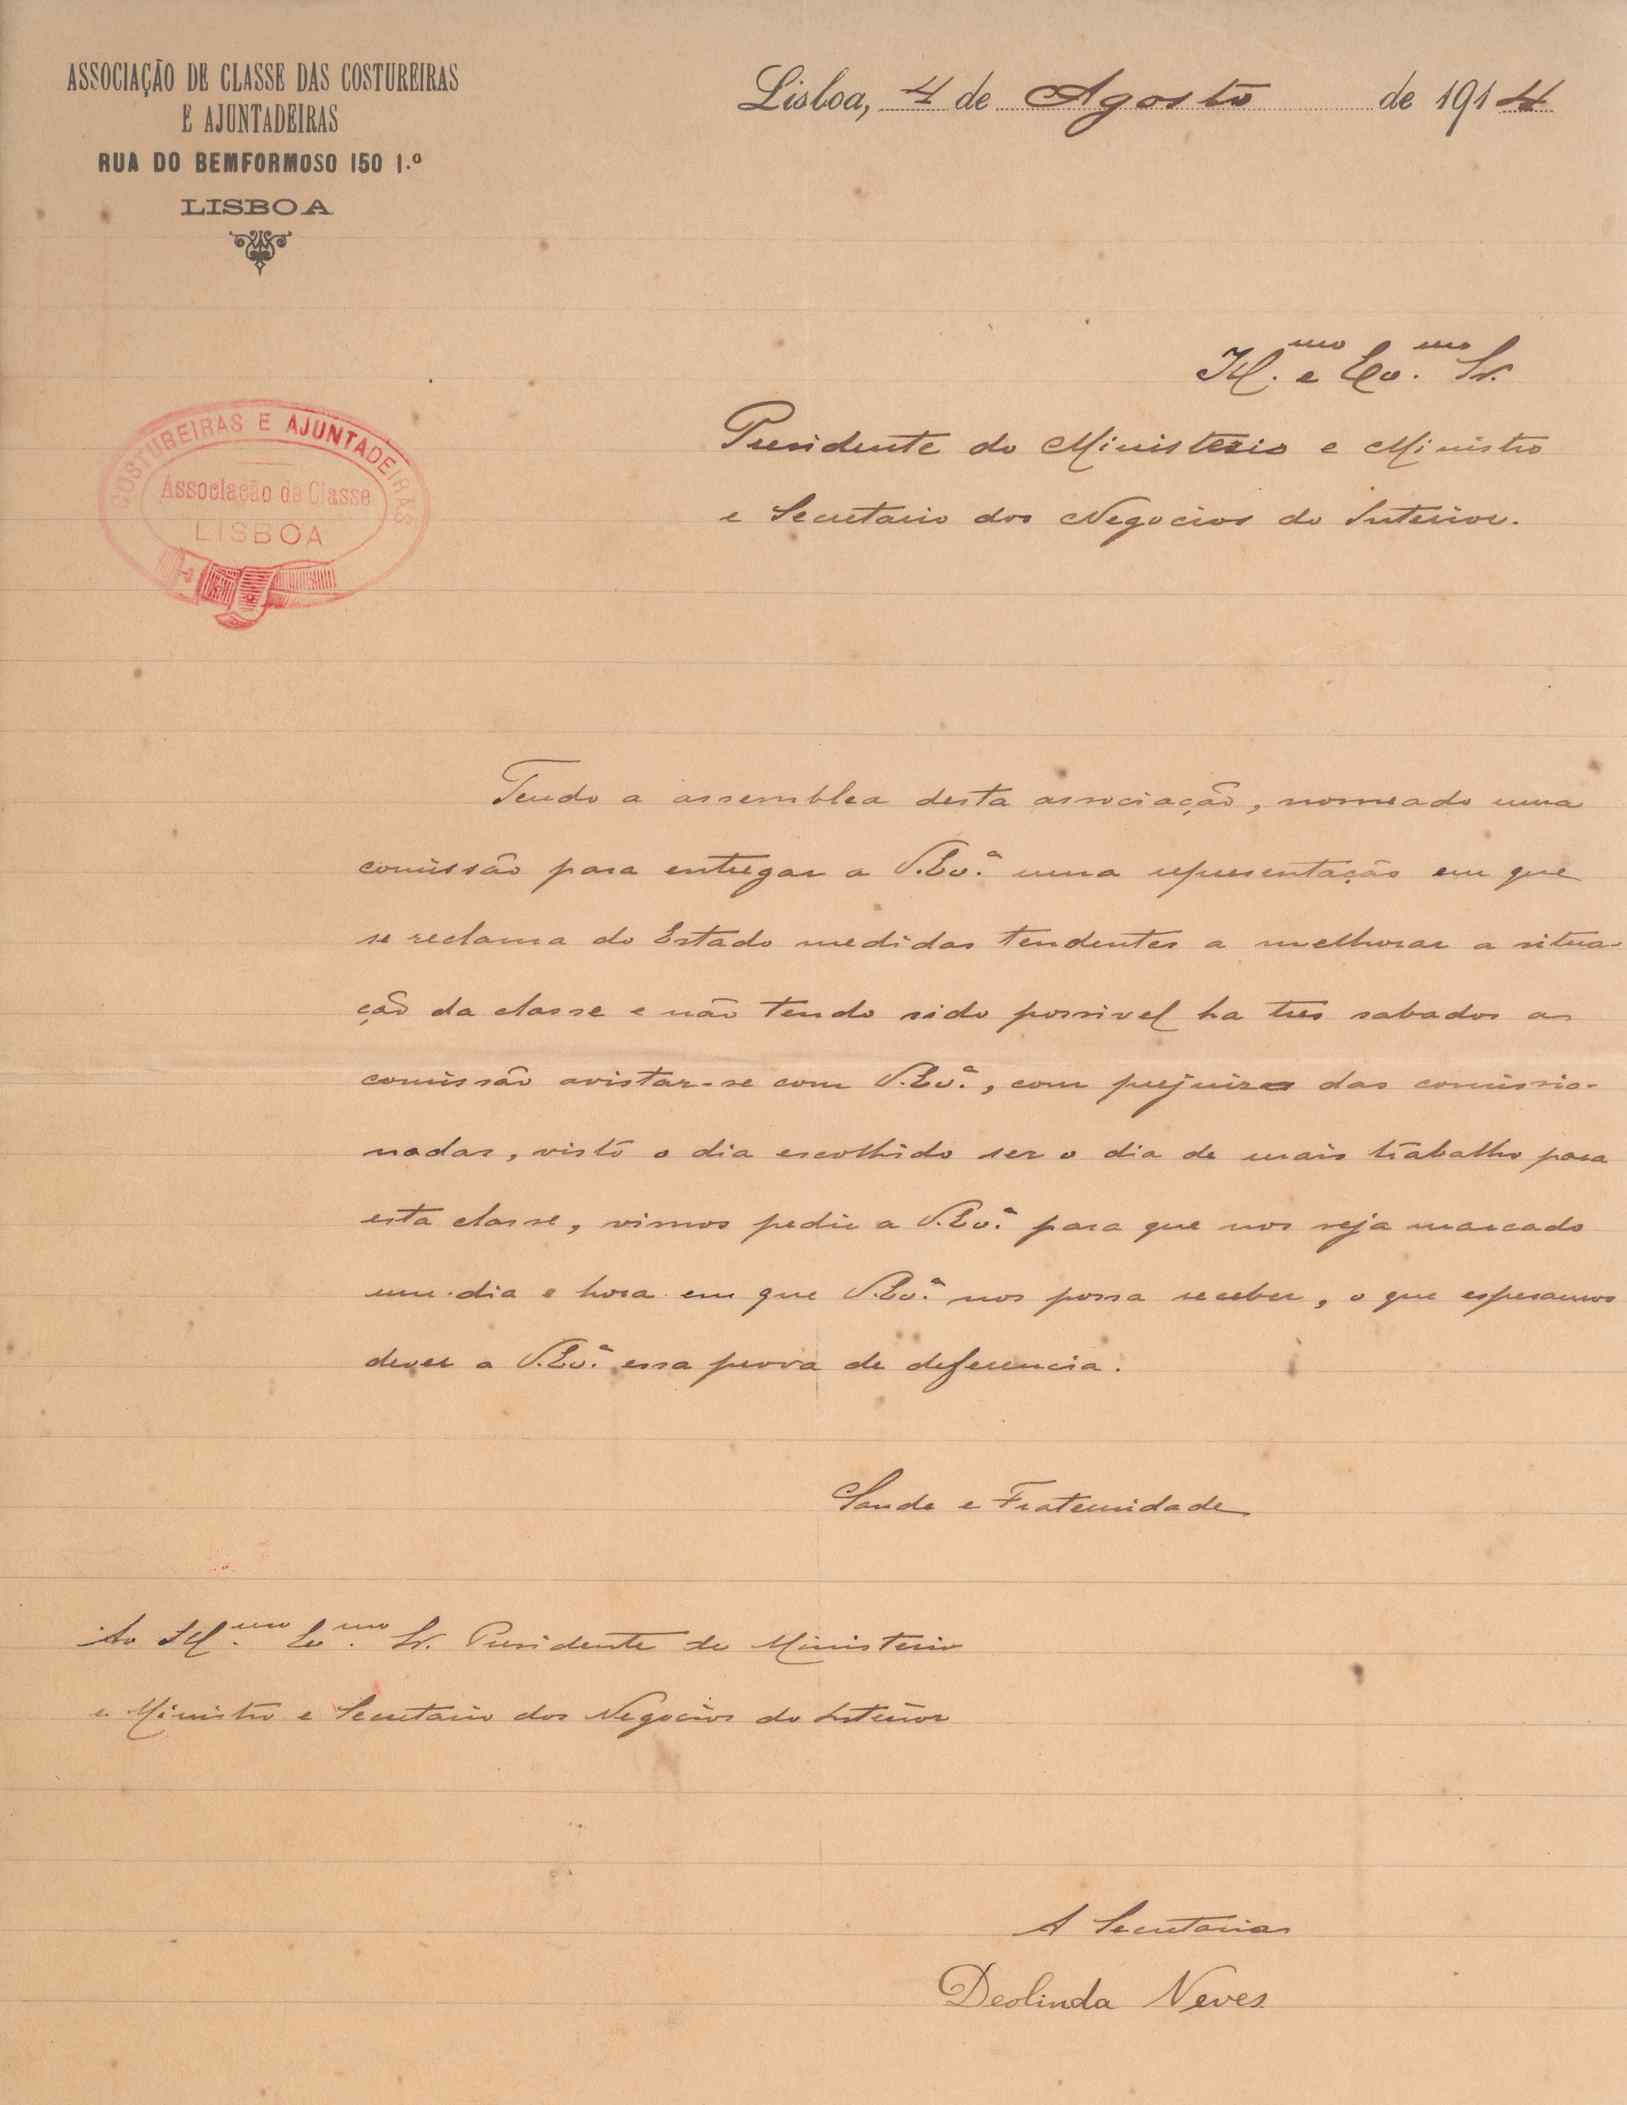 ASSOCIAÇÃO DE CLASSE DAS COSTUREIRAS
E AJUNTADEIRAS
RUA DO BEMFORMOSO 150 1.º
LISBOA
Lisboa, 4 de Agosto de 1914
Ill.mo e Ex.mo Sr.
Presidente do Ministerio e Ministro
e Secretario dos Negocios do Interior.
COSTUREIRAS E AJUNTADEIRAS
Associação de Classe
LISBOA
Tendo a assemblea desta associação, nomeado uma
comissão para entregar a V.Ex.ª uma representação em que
se reclama do Estado medidas tendentes a melhorar a situa-
ção da classe e não tendo sido possivel ha tres sabados a
comissão avistar-se com V.Ex.ª, com prejuizo das comissio-
nadas, visto o dia escolhido ser o dia de mais trabalho para
esta classe, vimos pedir a V.Ex.ª para que nos seja marcado
um dia e hora em que V.Ex.ª nos possa receber, o que esperamos
dever a V.Ex.ª essa prova de deferencia.
Saude e Fraternidade
Ao Ill.mo Ex.mo Sr. Presidente do Ministerio
e Ministro e Secretario dos Negocios do Interior
A Secretaria
Deolinda Neves